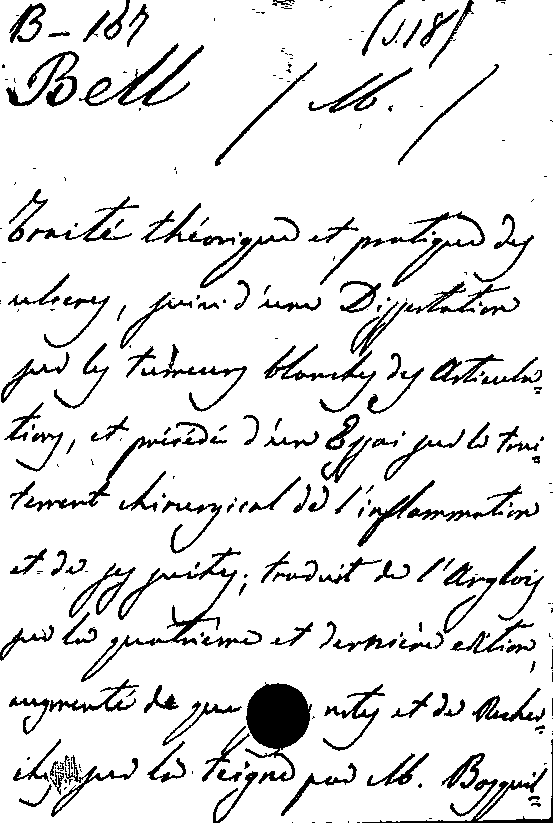 B – 167 (J.18)
Bell / M. /
Traité théorique et pratique des
ulceres, suivi d'une Dissertation
sur les tumeurs blanches des Articula=
tions, et précédé d'un Essai sur le trai=
tement chirurgical de l'inflammation
et de ses suites; traduit de l'Anglois
sur la quatrième et dernière edition,
augmenté de notes et de Recher=
ches sur la teigne par M. Bosquil=